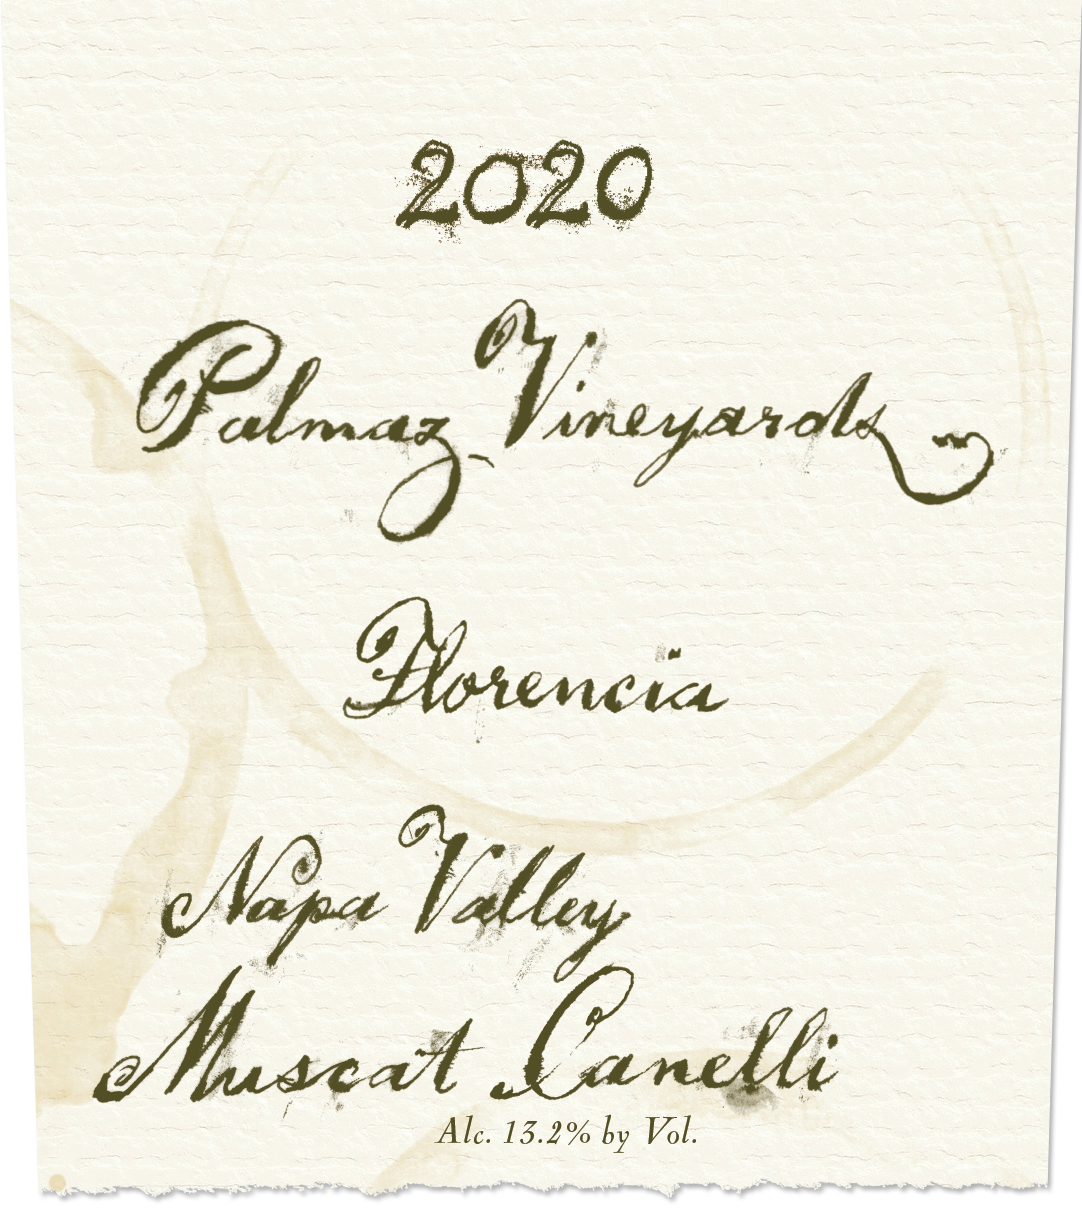 2020
Palmaz Vineyards
Florencia
Napa Valley
Muscat Canelli
Alc. 13.2% by Vol.